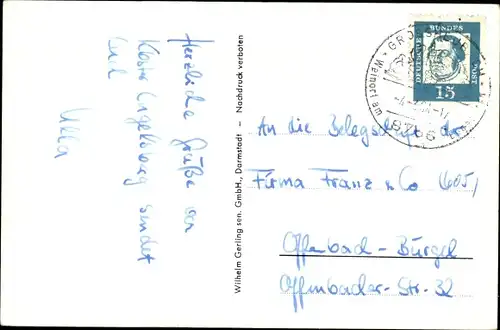 Herzliche Grüße von
Kloster Engelsberg sendet
Euch
Ulla
Wilhelm Gerling sen. GmbH., Darmstadt - Nachdruck verboten
DEUTSCHE BUNDESPOST
15
Weinort am
8766
An die Belegschaft der
Firma Franz & Co (605)
Offenbach-Bürgel
Offenbacher-Str. 32